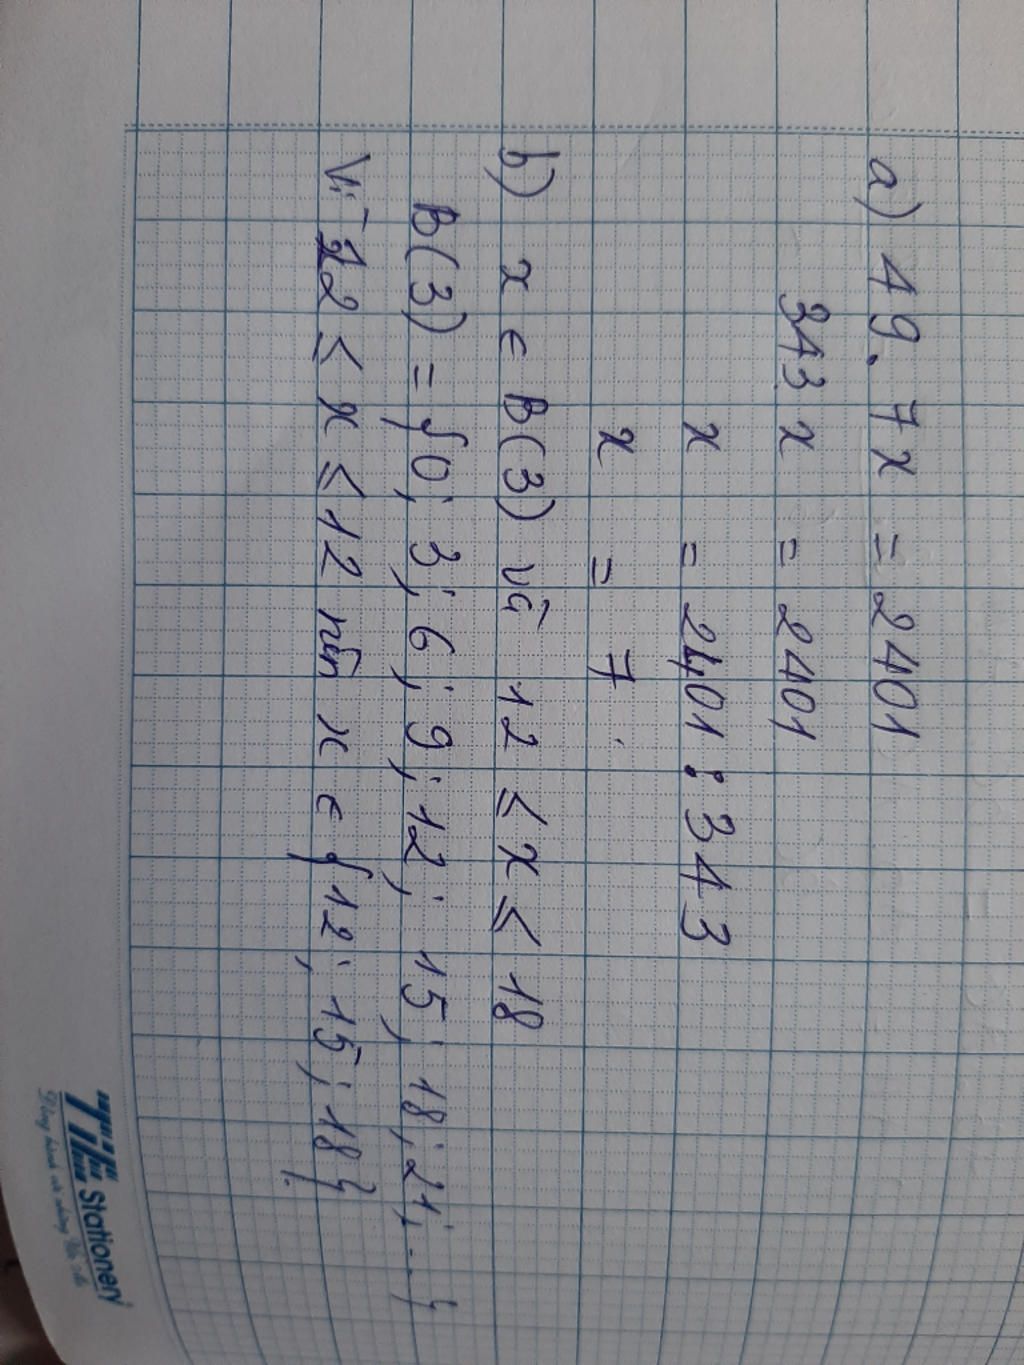 a) 49.7x = 2401
343x = 2401
x = 2401 : 343
x = 7.
b) x ∈ B(3) và 12 ≤ x ≤ 18
B(3) = {0; 3; 6; 9; 12; 15; 18; 21; ...}
Vì 12 ≤ x ≤ 12 nên x ∈ {12; 15; 18}.
Stationery